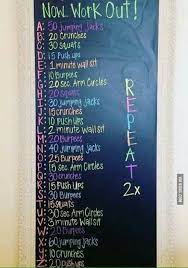 Now Work Out!
A: 50 jumping jacks
B: 20 crunches
C: 30 squats
D: 15 Push ups
E: 1 minute wall sit
F: 10 Burpees
G: 20 sec. Arm Circles
H: 20 squats
I: 30 jumping jacks
J: 15 crunches
K: 10 Push ups
L: 2 minute wall sit
M: 20 Burpees
N: 40 jumping jacks
O: 25 Burpees
P: 15 sec. Arm Circles
Q: 30 crunches
R: 15 Push ups
S: 30 Burpees
T: 15 squats
U: 30 sec. Arm Circles
V: 3 minute wall sit
W: 20 Burpees
X: 60 jumping jacks
Y: 10 crunches
Z: 20 push ups
REPEAT
2x